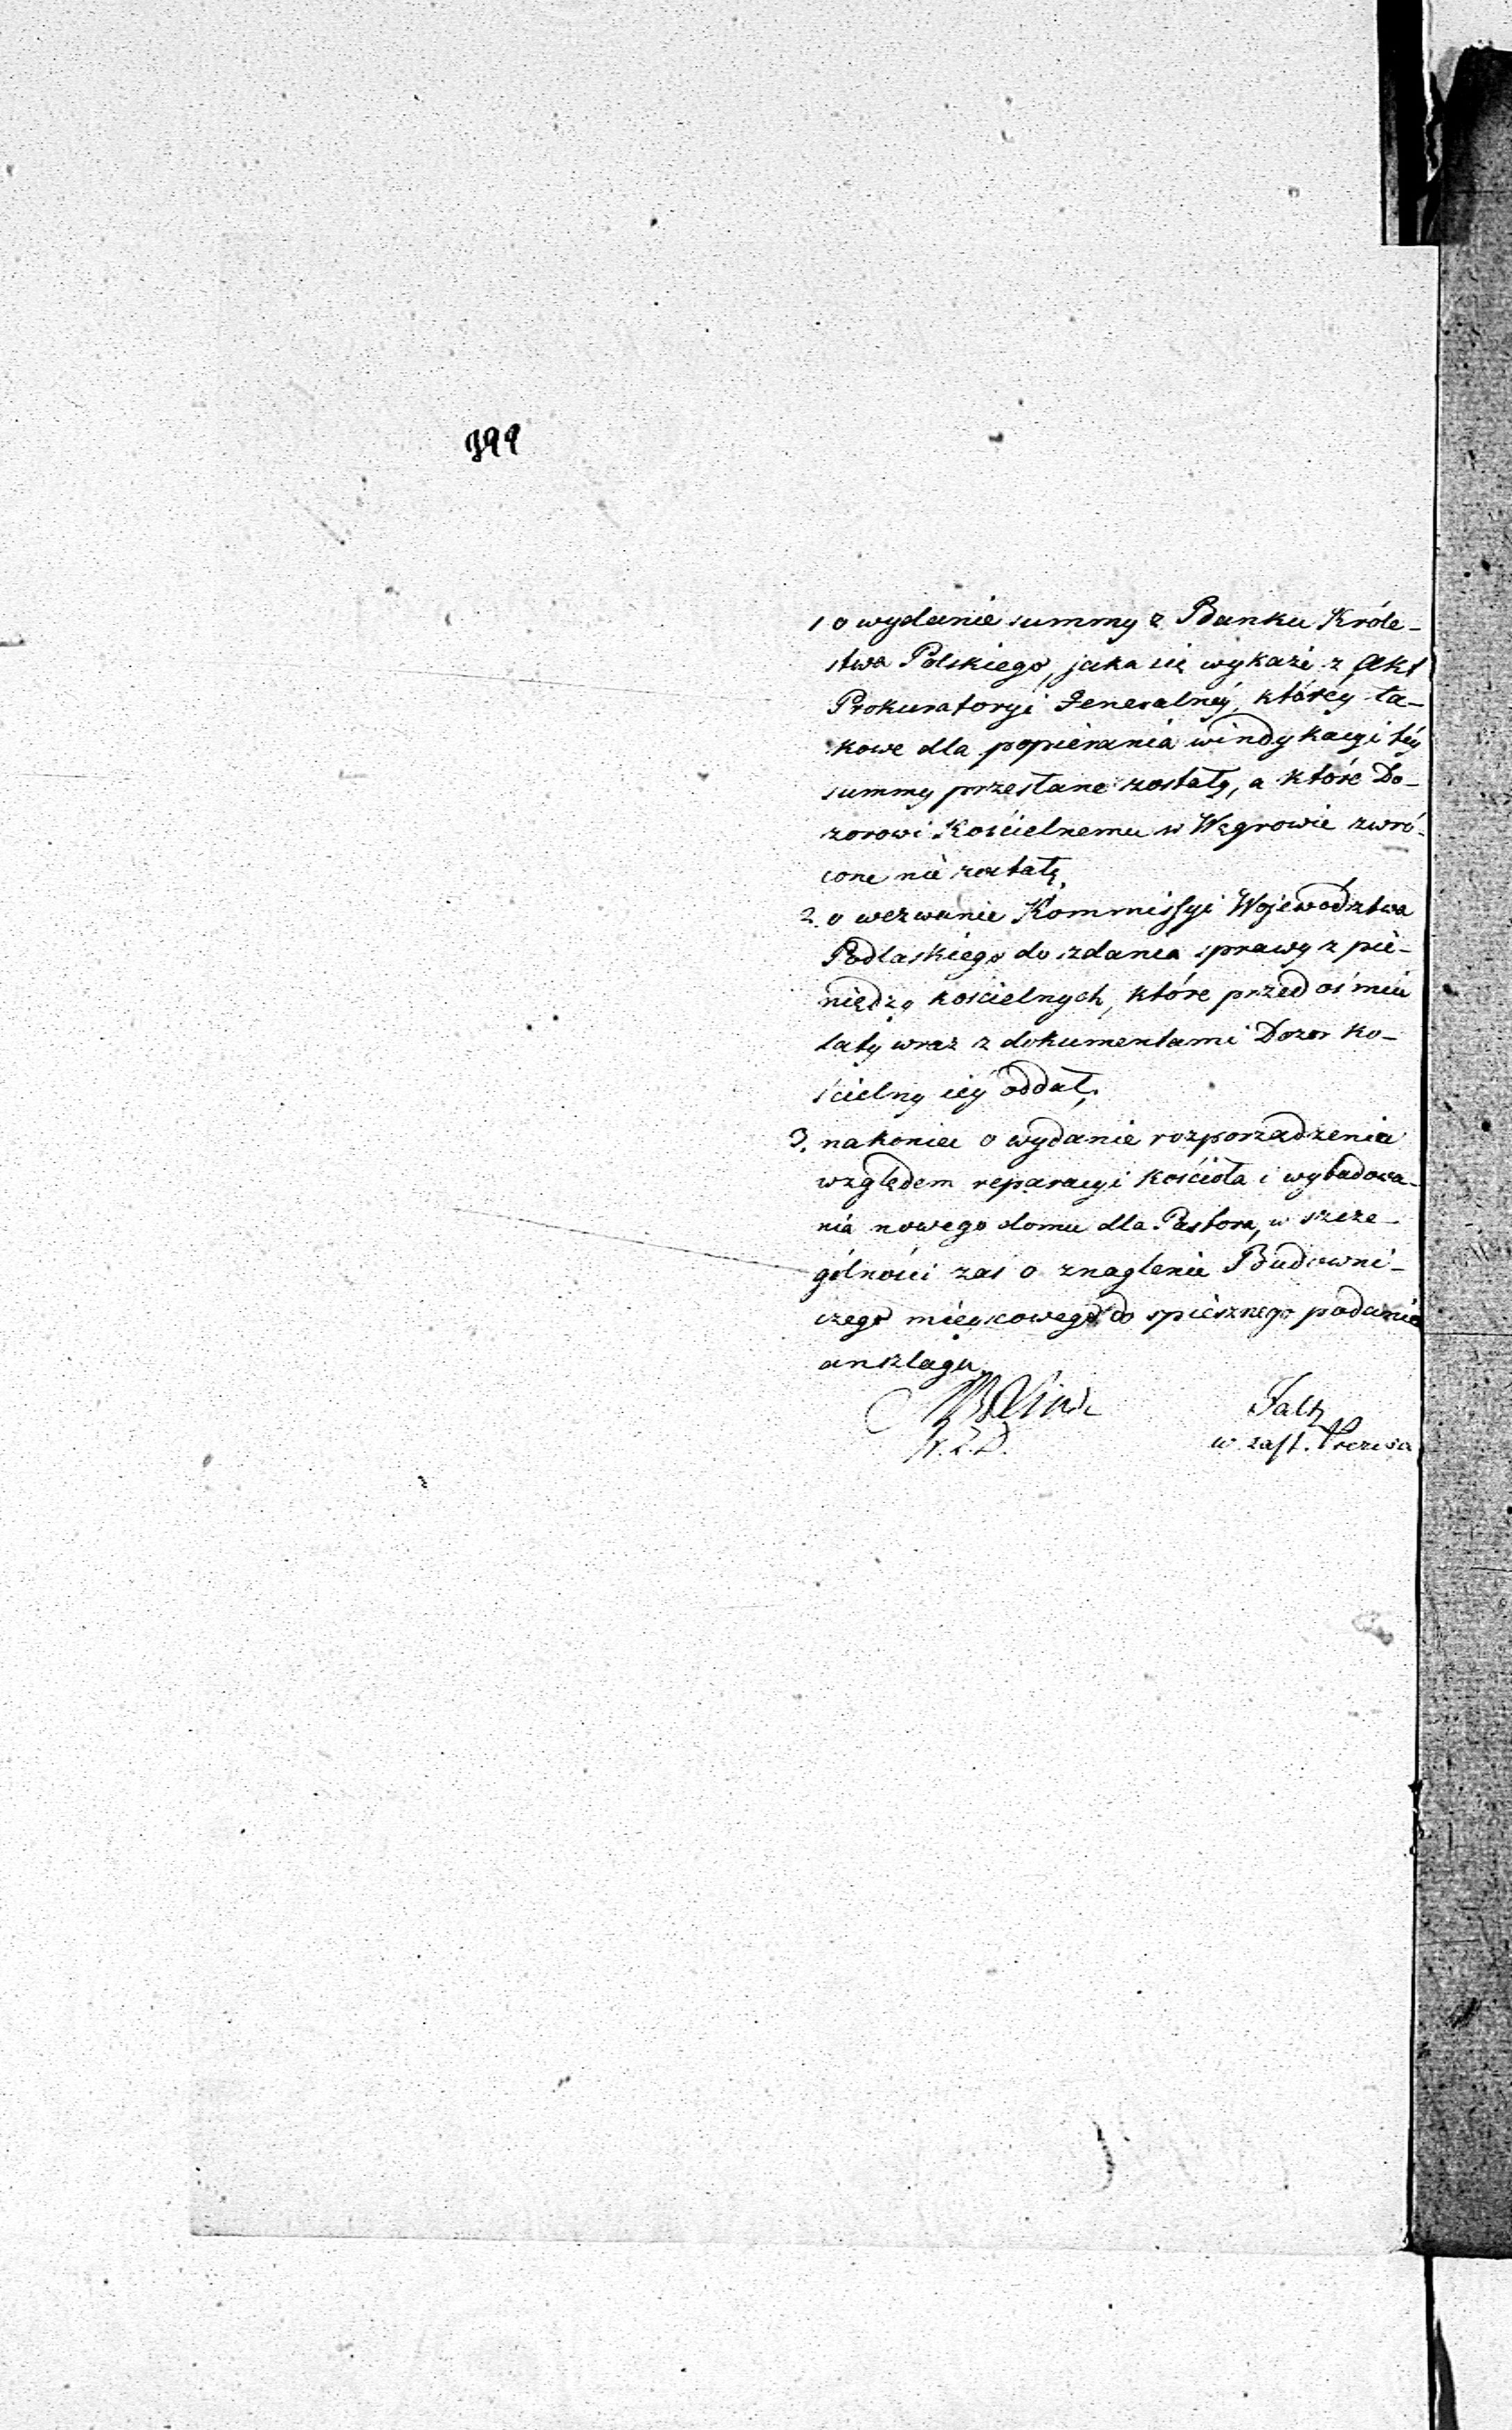 399
1 o wydanie summy z Banku Króle-
stwa Polskiego, jaka się wykaże z Akt
Prokuratoryi Generalnéy, któréy ta-
kowe dla popierania windykacyi téy
summy przesłane zostały, a które Do-
zorowi Kościelnemu w Węgrowie zwró-
cone nie zostały,
2. o wezwanie Kommissyi Województwa
Podlaskiego do zdania sprawy z pie-
niędzy kościelnych, które przed ośmiu
laty wraz z dokumentami Dozor ko-
ścielny iéy oddał,
3. nakoniec o wydanie rozporządzenia
względem reparacyi kościoła i wybudowa-
nia nowego domu dla Pastora, w szcze-
gólności zas o znaglenie Budowni-
czego mieyscowego do spiesznego podania
anszlagu.
Falk
w zast. Prezesa